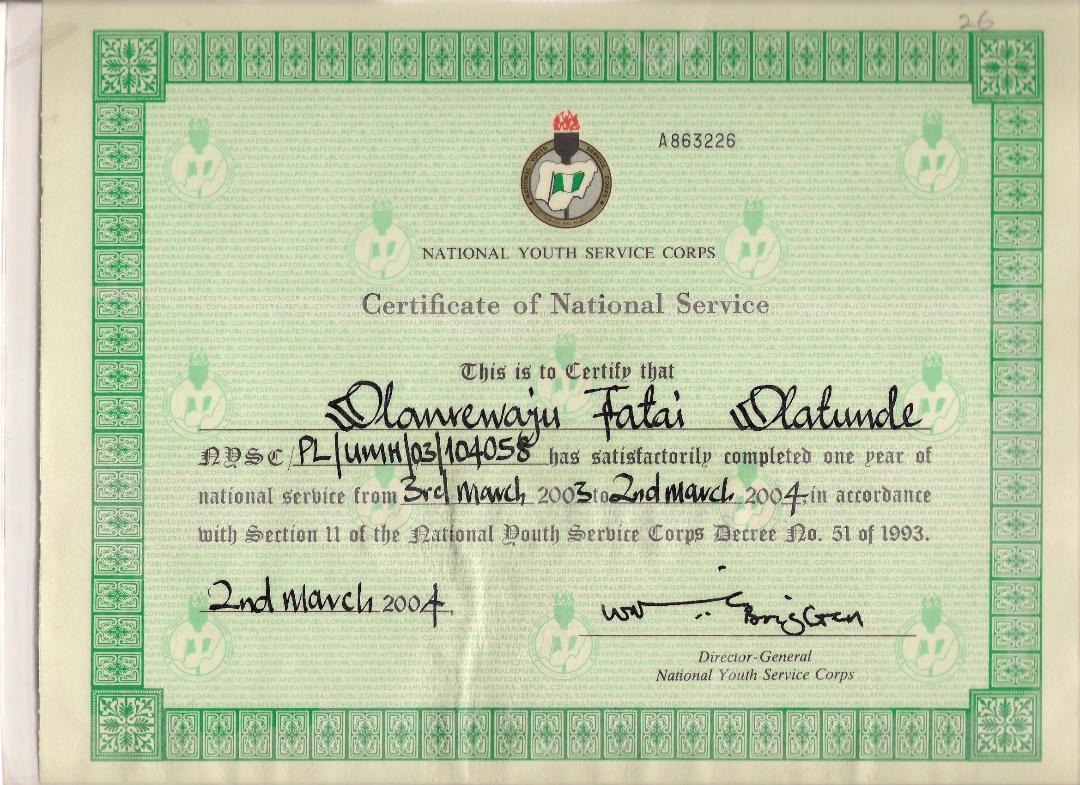 26
A863226
NATIONAL YOUTH SERVICE CORPS
Certificate of National Service
This is to Certify that
Olanrewaju Fatai Olatunde
NYSC/PL/UMH/03/104058 has satisfactorily completed one year of
national service from 3rd March 2003 to 2nd March 2004, in accordance
with Section 11 of the National Youth Service Corps Decree No. 51 of 1993.
2nd March 2004.
Brig Gen
Director-General
National Youth Service Corps